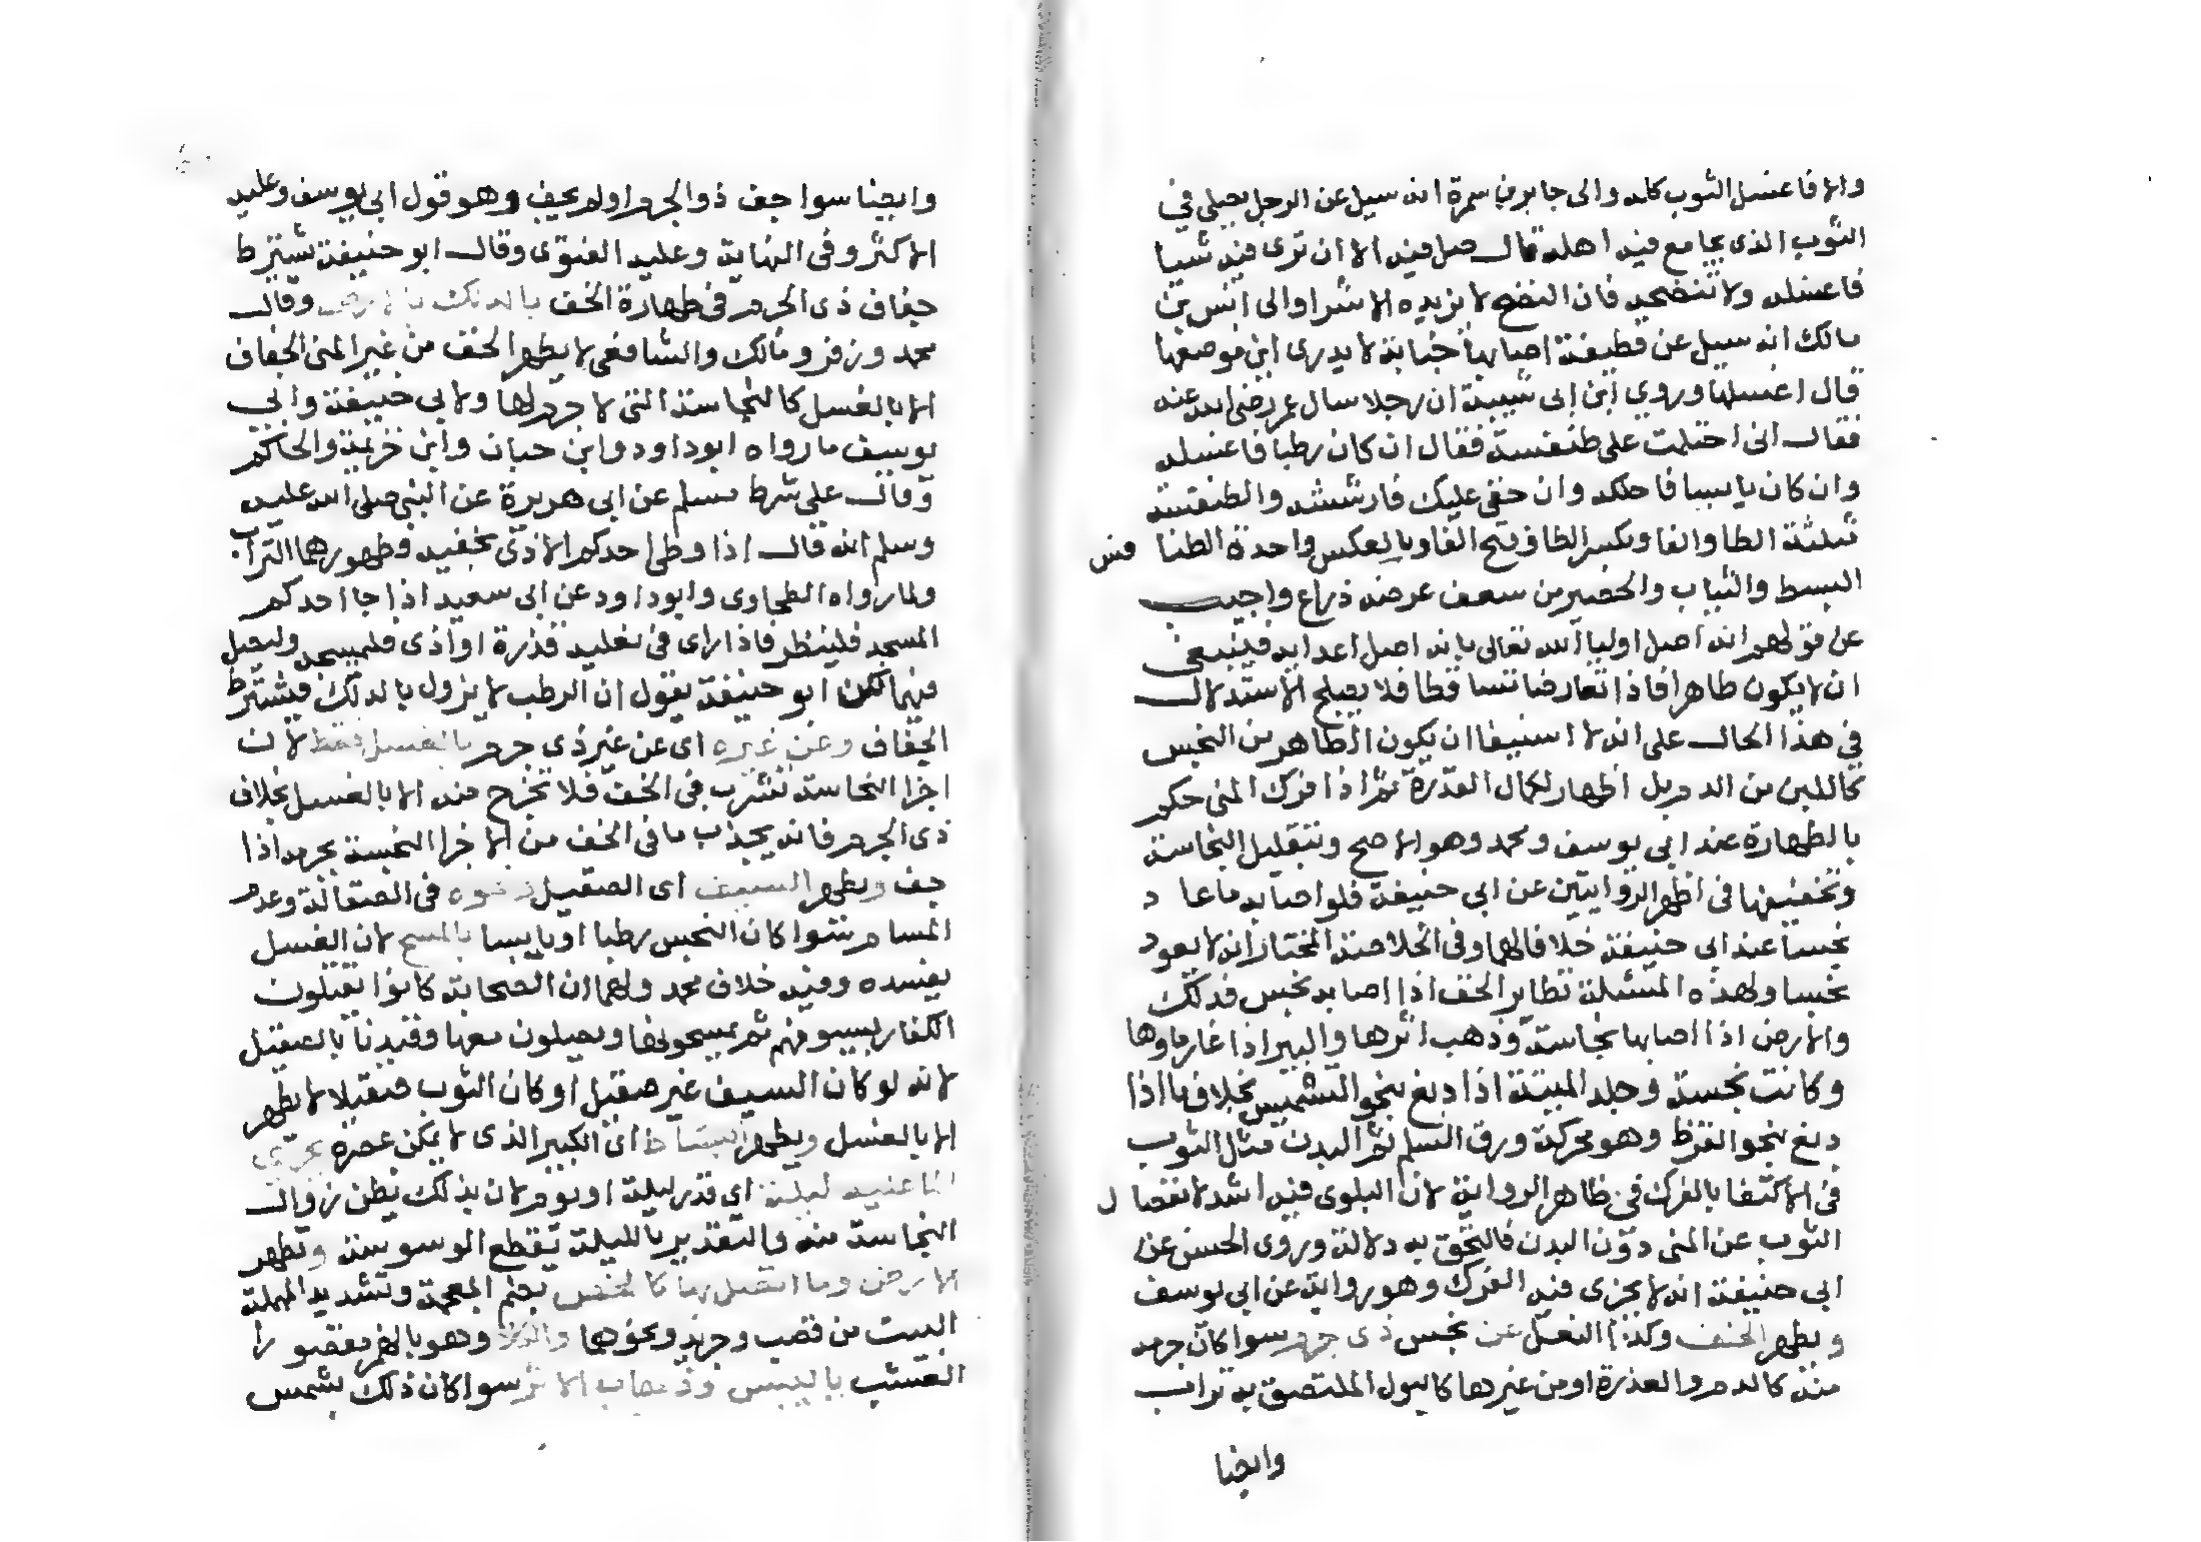 والا فاغسل الثوب كله والى جابر بن سمرة انه سيل عن الرجل يصلى في
الثوب الذى يجامع فيه اهله قال صل فيه الا ان ترى فيه شيا
فاغسله ولا تنضحه فان النضح لا يزيده الا شرا والى انس بن
مالك انه سيل عن قطيفة اصابها جنابة لا يدرى اين موضعها
قال اغسلها وروى ابن ابى شيبة ان رجلا سال عمر رضى الله عنه
فقال انى احتلمت على طنفسة فقال ان كان رطبا فاغسله
وان كان يابسا فاحككه وان خفى عليك فارششه والطنفسة
بثلثة الطا والفا وبكسر الطا وفتح الفا وبالعكس واحدة الطنا فس
البسط والثياب والحصير من سعف عرضه ذراع واجيب
عن قولهم انه اصل اوليا الله تعالى بانه اصل اعدايه فينبغى
ان لا يكون طاهرا فاذا تعارضا تساقطا فلا يصلح الاستدلال
فى هذا الحال على انه لا استيفا ان يكون الطاهر من النجس
كاللبن من الدم بل اظهار لكمال القدرة ثم اذا فرك المنى حكم
بالطهارة عند ابى يوسف ومحمد وهو الاصح وبتقليل النجاسة
وتخفيفها فى اظهر الروايتين عن ابى حنيفة فلو اصابه ما عا د
نجسا عند ابى حنيفة خلافا لهما وفى الخلاصة المختار انه لا يعود
نجسا ولهذه المسئلة نظاير الخف اذا اصابه نجس فدلك
والارض اذا اصابها نجاسة وذهب اثرها والبير اذا غار ماوها
وكانت نجسة وجلد الميتة اذا دبغ بنحو التشميس بخلاف ما اذا
دبغ بنحو القرظ وهو محركة ورق السلم ثم البدن مثل الثوب
فى الاكتفا بالفرك فى ظاهر الرواية لان البلوى فيه اشد لانفصا ل
الثوب عن المنى دون البدن فالتحق به دلالة وروى الحسن عن
ابى حنيفة انه لا يجزى فيه الفرك وهو رواية عن ابى يوسف
ويطهر الخف وكذا النعل عن نجس ذى جرم سوا كان جرمه
منه كالدم والعذرة او من غيرها كالبول الملتصق به تراب
وايضا
وايضا سوا جف ذو الجرم او لم يجف وهو قول ابى يوسف وعليه
الاكثر وفى النهاية وعليه الفتوى وقال ابو حنيفة يشترط
جفاف ذى الجرم فى طهارة الخف بالدلك بالارض وقال
محمد وزفر ومالك والشافعى لا يطهر الخف من غير المنى الجفاف
الا بالغسل كالنجاسة التى لا جرم لها ولابى حنيفة وابى
يوسف ما رواه ابو داود وابن حبان وابن خزيمة والحاكم
وقال على شرط مسلم عن ابى هريرة عن النبى صلى الله عليه
وسلم انه قال اذا وطئ احدكم الاذى بخفيه فطهورهما التراب
ولما رواه الطحاوى وابو داود عن ابى سعيد اذا جا احدكم
المسجد فلينظر فاذا راى فى نعليه قذرة او اذى فليمسحه وليصل
فيهما لكن ابو حنيفة يقول ان الرطب لا يزول بالدلك فيشترط
الجفاف وعن غيره اى عن غير ذى جرم بالغسل فقط لان
اجزا النجاسة تتشرب فى الخف فلا تخرج منه الا بالغسل بخلاف
ذى الجرم فانه يجذب ما فى الخف من الاجزا النجسة بجرمه اذا
جف ويطهر السيف اى الصقيل ونحوه فى الصقالة وعدم
المسام سوا كان النجس رطبا او يابسا بالمسح لان الغسل
يفسده وفيه خلاف محمد ولهما ان الصحابة كانوا يقتلون
الكفار بسيوفهم ثم يمسحونها ويصلون معها وقيدنا بالصقيل
لانه لو كان السيف غير صقيل او كان الثوب صقيلا لا يطهر
الا بالغسل ويطهر البساط اى الكبير الذى لا يمكن عصره بجرى
الما عليه ليلة اى قدر ليلة او يوم لان بذلك يظن زوال
النجاسة منه والتقدير بالليلة لقطع الوسوسة وتطهر
الارض وما اتصل بها كالخص بضم المعجمة وتشديد المهملة
البيت من قصب وجريد ونحوها والكلا وهو بالهمز مقصو را
العشب باليبس وذهاب الاثر سوا كان ذلك بشمس